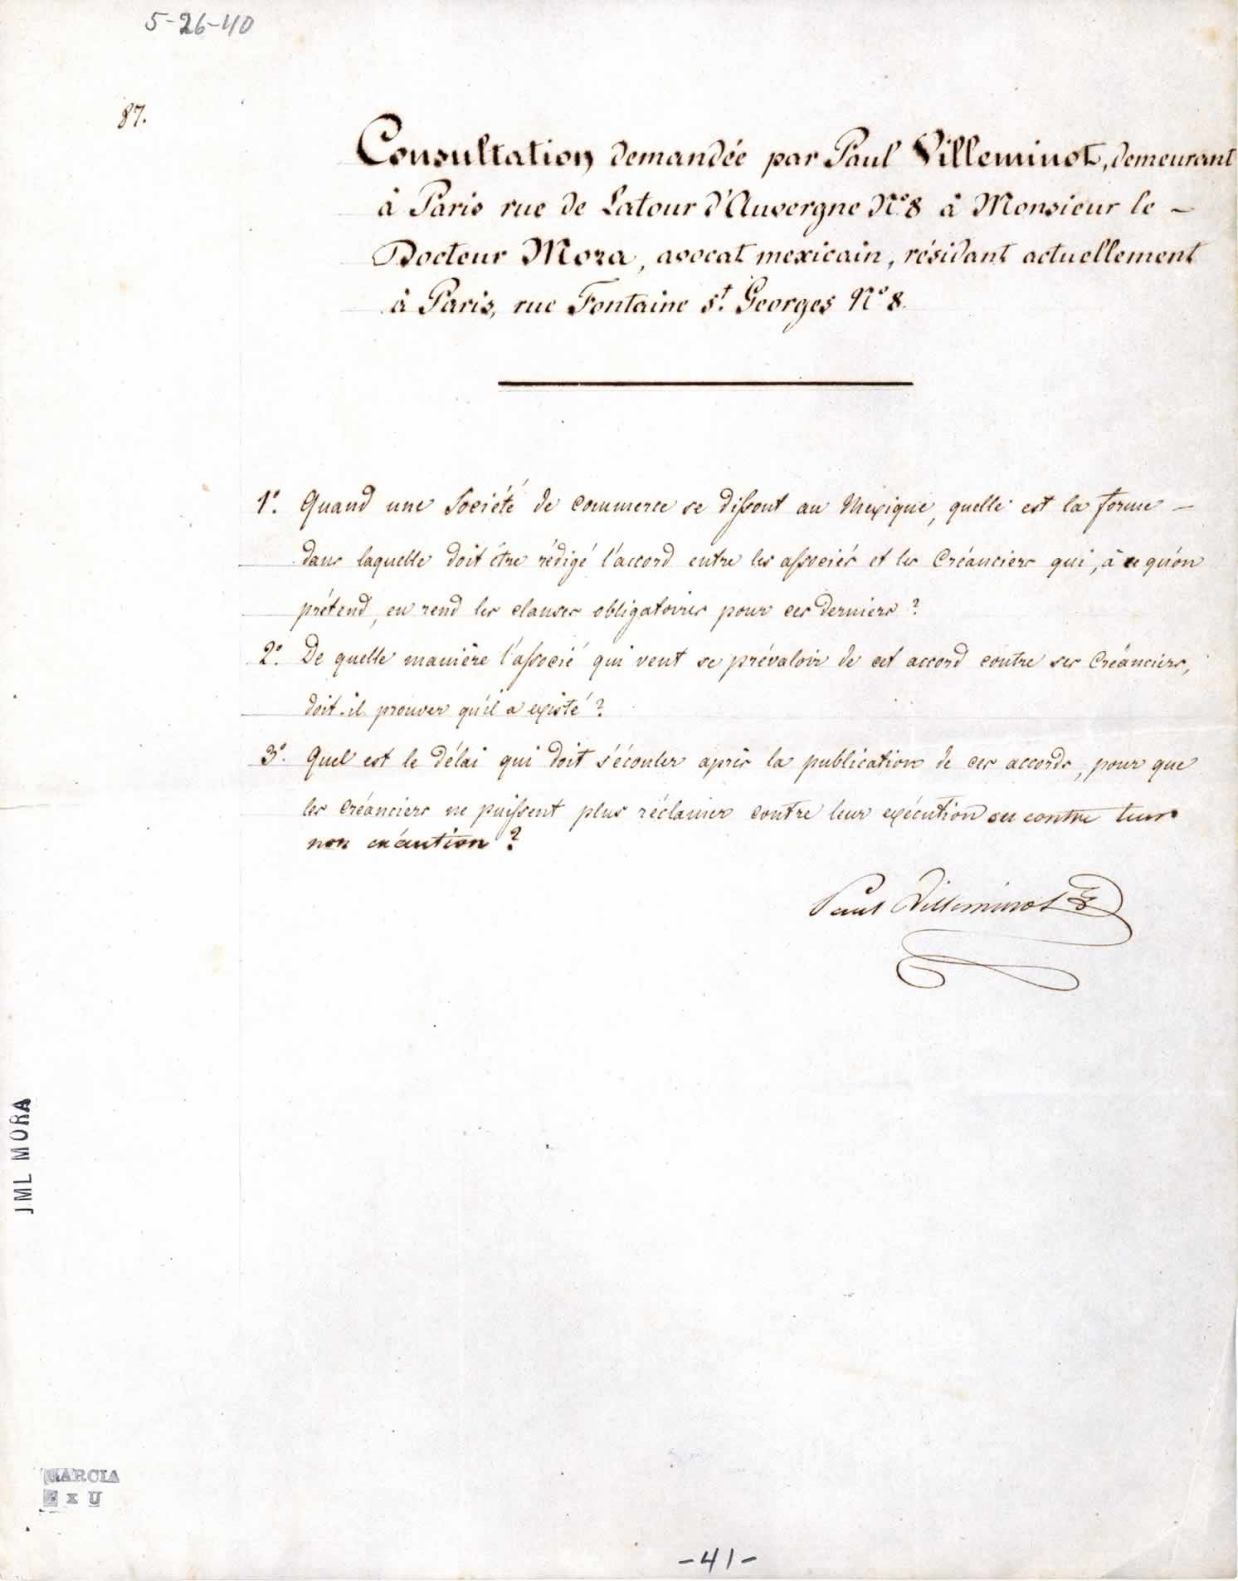 5-26-40
87.
Consultation demandée par Paul Villeminot, demeurant
à Paris rue de Latour d'Auvergne N° 8 à Monsieur le –
Docteur Mora, avocat mexicain, résidant actuellement
à Paris, rue Fontaine St. Georges N° 8.
1°. Quand une Société de commerce se dissout au Mexique, quelle est la forme –
dans laquelle doit être rédigé l'accord entre les associés et les Créanciers qui, à ce qu'on
prétend, en rend les clauses obligatoires pour ces derniers ?
2°. De quelle manière l'associé qui veut se prévaloir de cet accord contre ses Créanciers,
doit-il prouver qu'il a existé ?
3°. Quel est le délai qui doit s'écouler après la publication de ces accords, pour que
les créanciers ne puissent plus réclamer contre leur exécution ou contre leur
non exécution ?
Paul Villeminot
JML MORA
GARCIA
x U
-41-